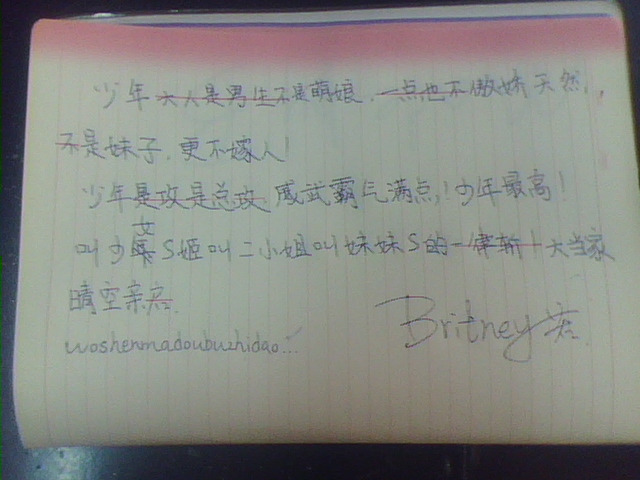 少年大人是男生不是萌娘,一点也不傲娇天然,
不是妹子,更不嫁人!
少年是攻是总攻 威武霸气满点!少年最高!
叫少女S姬叫二小姐叫妹妹S的一律斩!大当家
晴空亲启.
woshenmadoubuzhidao...
Britney